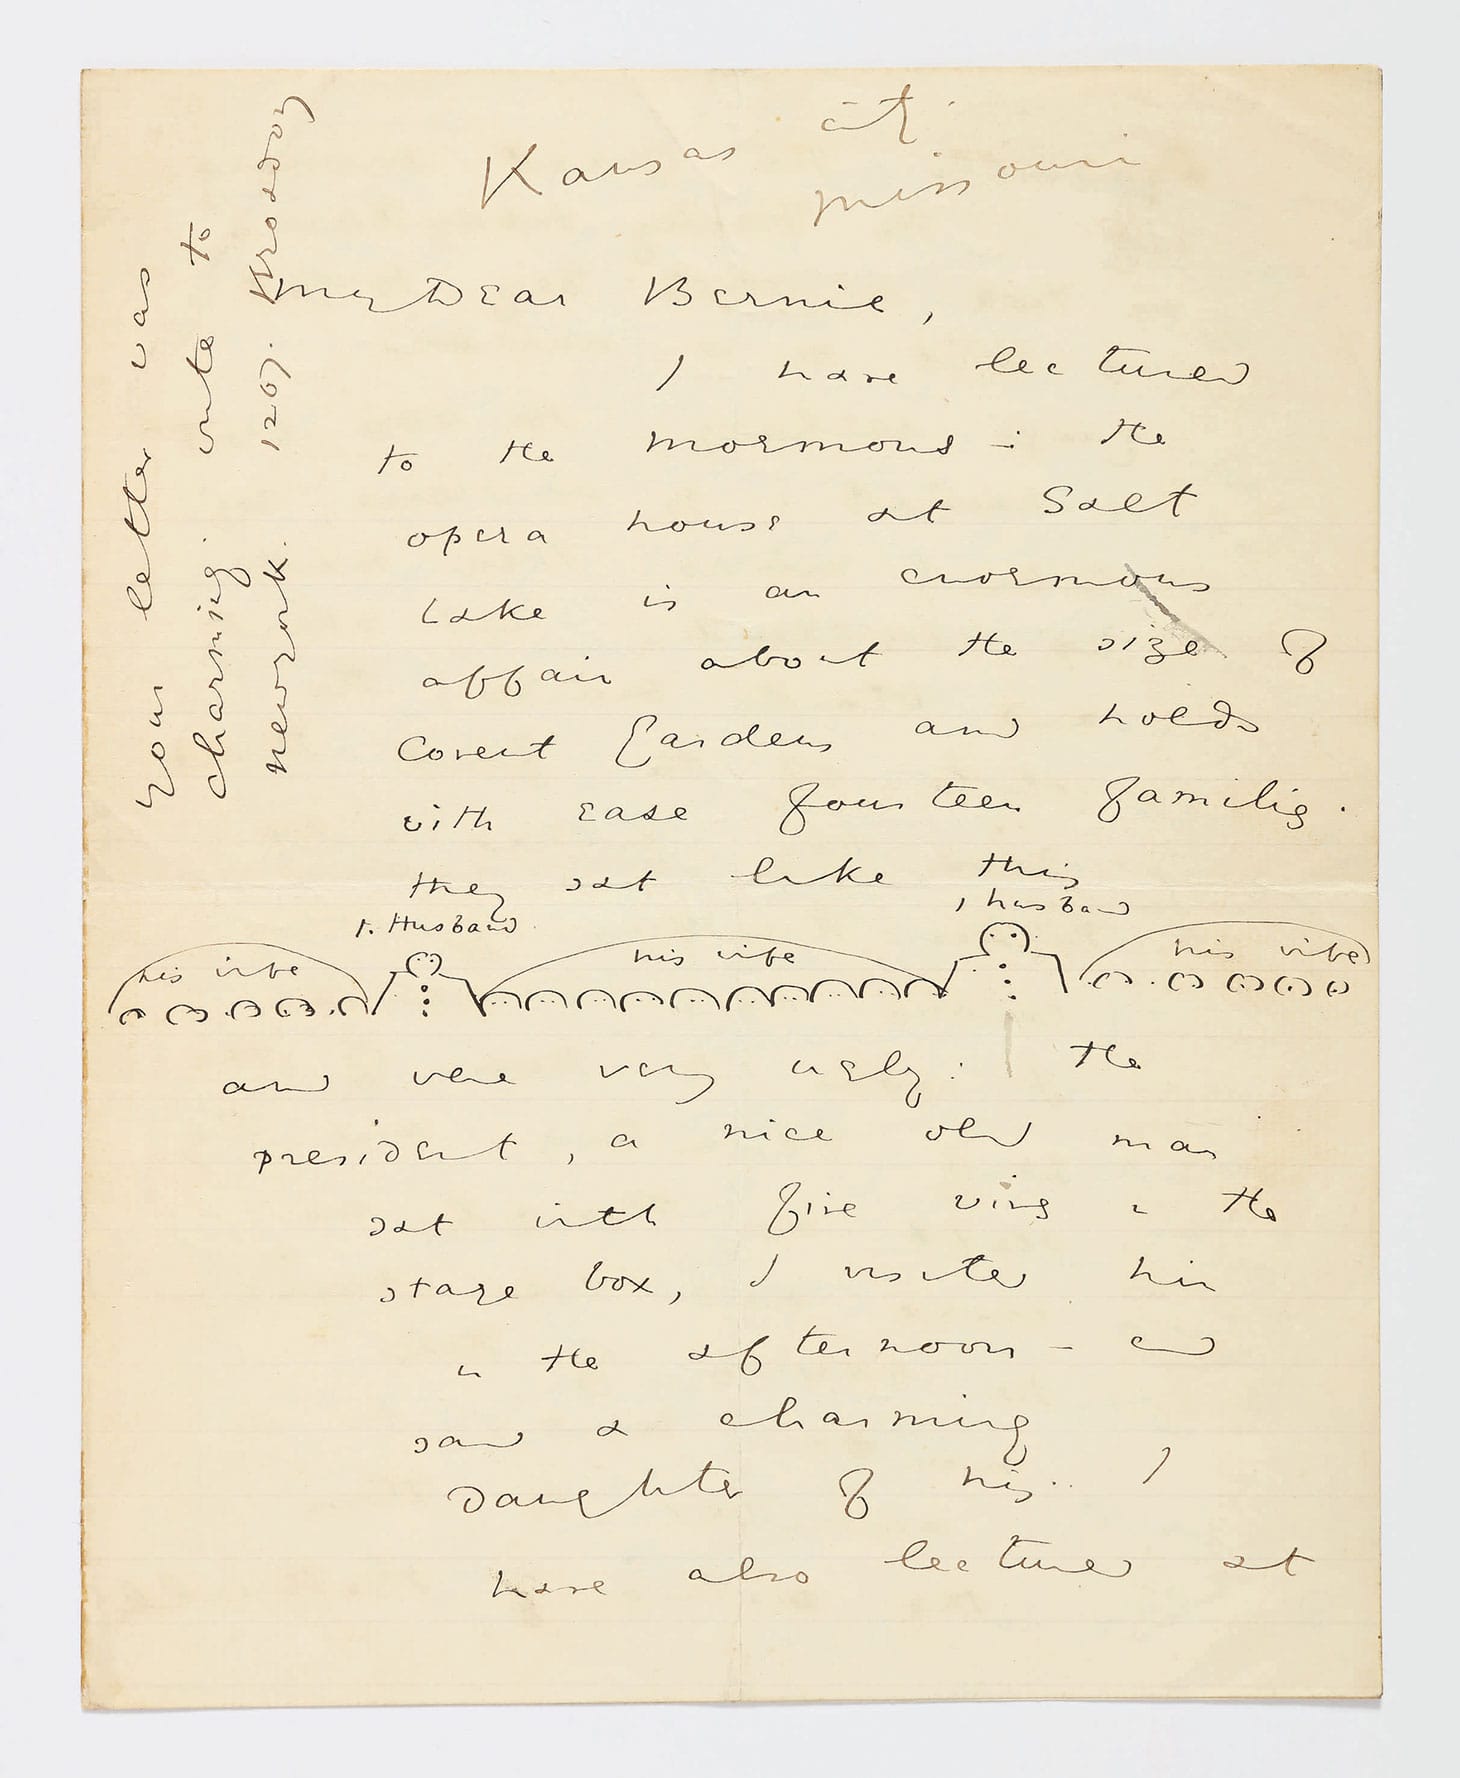 Kansas City
Missouri
My Dear Bernie,
I have lectured
to the Mormons – the
opera house at Salt
Lake is an enormous
affair about the size of
Covent Gardens and holds
with ease fourteen families.
they sat like this
1. Husband
1 husband
his wife
his wife
his wife
and were very ugly: the
president, a nice old man
sat with five wives in the
stage box, I visited him
in the afternoon – and
saw a charming
daughter of his. I
have also lectured at
Your letter was
charming. write to
1267. Broadway
New York.